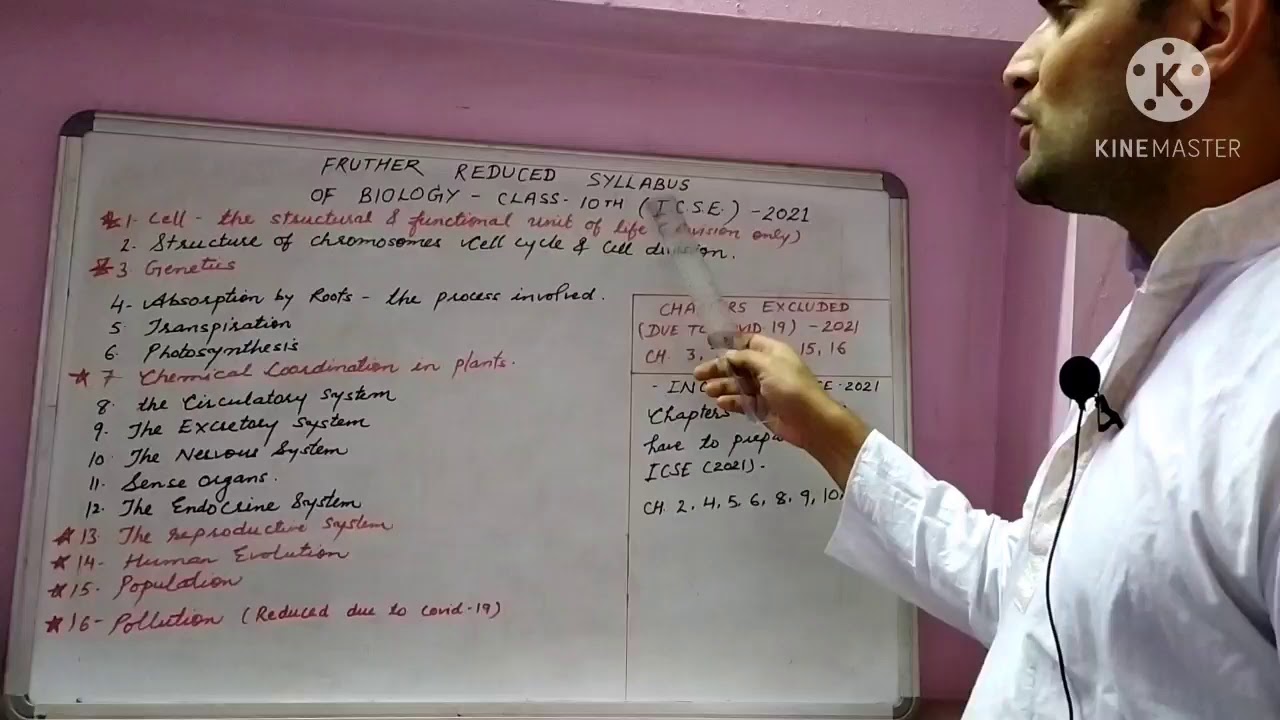 FRUTHER REDUCED SYLLABUS
OF BIOLOGY - CLASS- 10TH (I.C.S.E.) - 2021
★1- Cell - the structural & functional unit of life only)
2. Structure of chromosomes Cell cycle & Cell division.
★3 Genetics
4- Absorption by Roots - the process involved.
5. Transpiration
6. Photosynthesis
★7 Chemical Coordination in plants.
8. the Circulatory System
9. The Excretory System
10 The Nervous System
11. Sense organs.
12. The Endocrine System
★13 The reproductive system
★14- Human Evolution
★15- Population
★16- Pollution (Reduced due to covid-19)
EXCLUDED
(DUE 19) - 2021
CH. 3, 15, 16
2021
Chapters
have to
ICSE (2021)-
CH. 2, 4, 5, 6, 8, 9, 10,
K
KINEMASTER